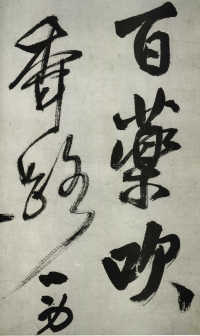 百藥吹
香路一